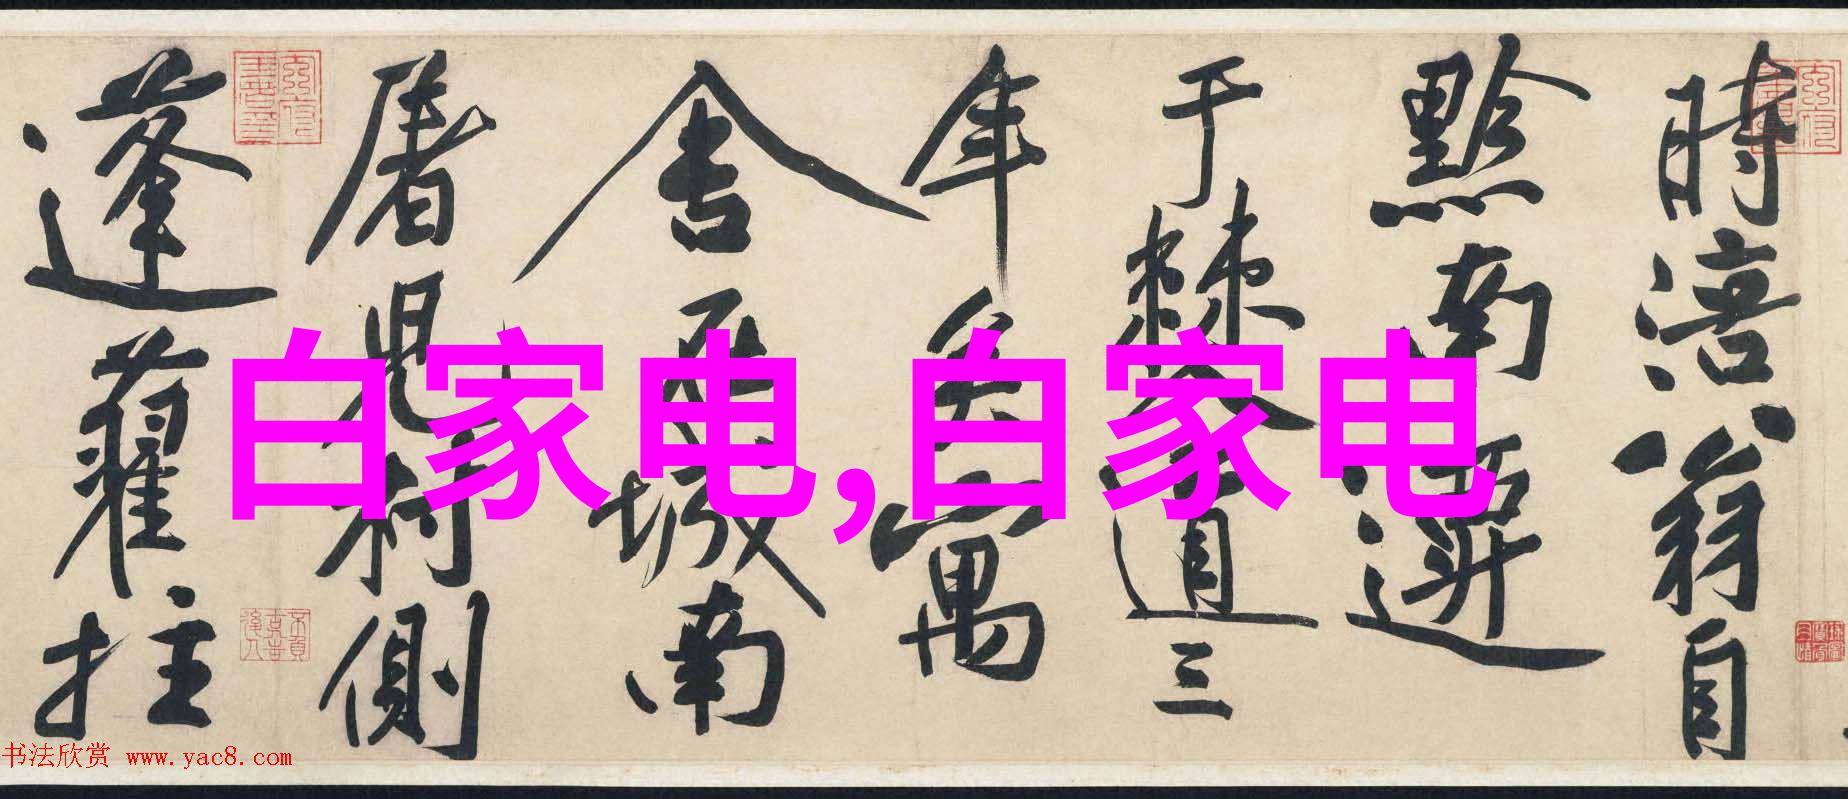 時涪翁自
黔南遷
于僰道三
年矣寓
舍在城南
屠兒村側
蓬藋拄
白家电,白家电
书法欣赏 www.yac8.com